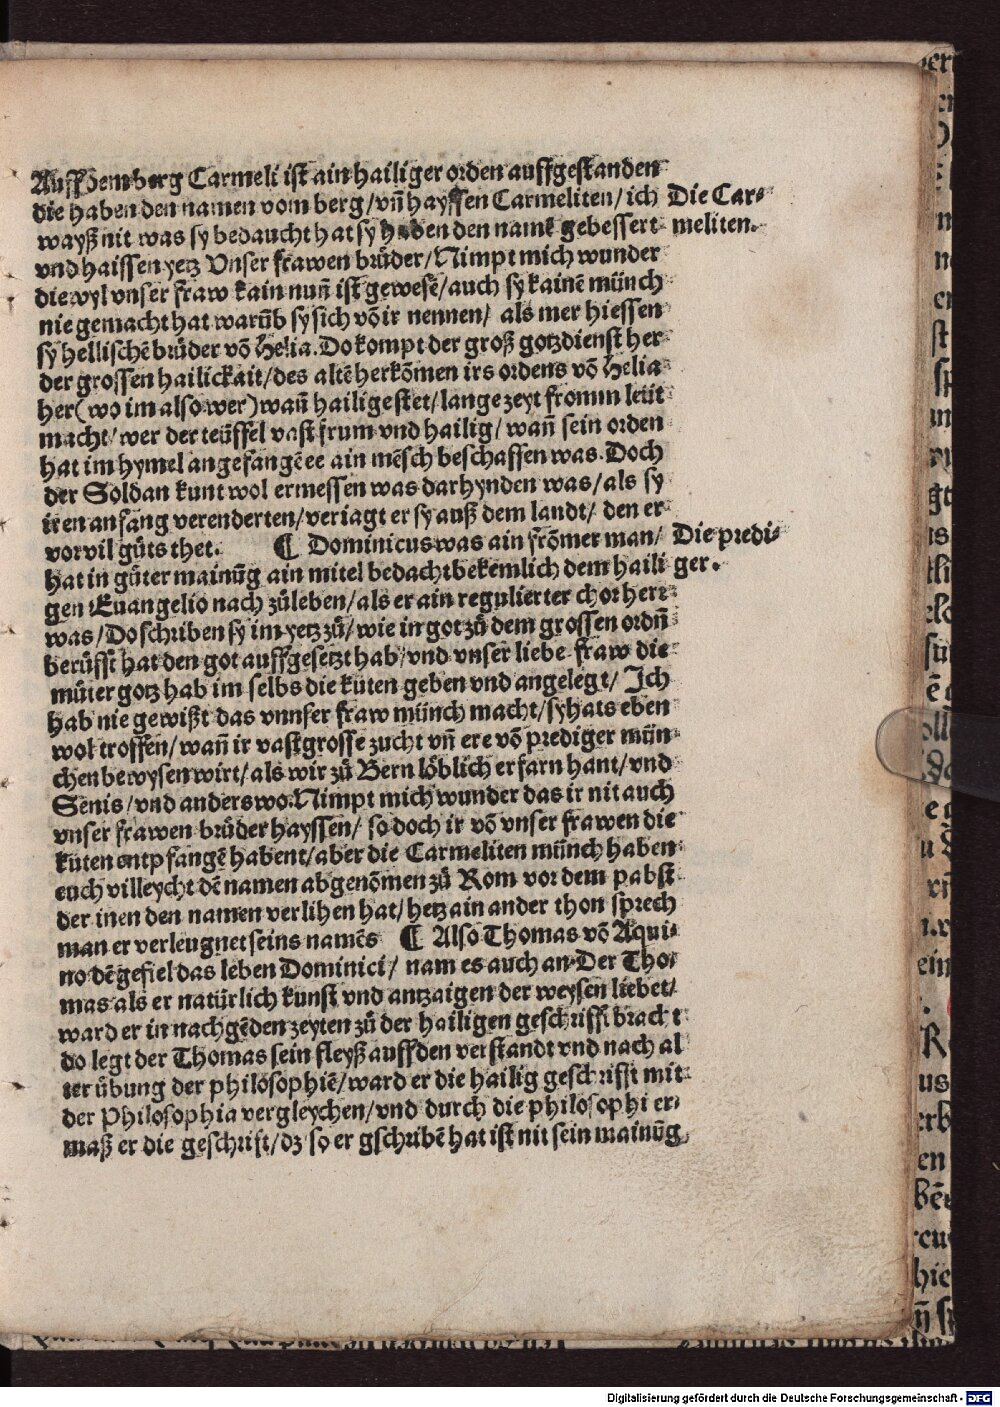 Auff dem berg Carmeli ist ain hailiger orden auffgestanden
die haben den namen vom berg / vñ hayssen Carmeliten / ich
Die Car-
wayß nit was sy bedaucht hat sy haben den namē gebessert
meliten.
vnd haissen yetz Vnser frawen brüder / Nimpt mich wunder
die wyl vnser fraw kain nuñ ist gewesē / auch sy kainē münch
nie gemacht hat warūb sy sich vō ir nennen / als mer hiessen
sy hellischē brüder vō Helia. Do kompt der groß gotzdienst her
der grossen hailickait / des altē herkōmen irs ordens vō Helia
her (wo im also wer) wañ hailig estet / lange zeyt fromm leüt
macht / wer der teüffel vast frum vnd hailig / wañ sein orden
hat im hymel angefangē ee ain mēsch beschaffen was. Doch
der Soldan kunt wol ermessen was darhynden was / als sy
iren anfang verenderten / veriagt er sy auß dem landt / den er
vor vil gůts thet. ¶ Dominicus was ain frōmer man /
Die predi-
hat in gůter mainūg ain mitel bedacht bekemlich dem haili
ger.
gen Euangelio nach zůleben / als er ain regulierter chorherr
was / Do schriben sy im yetz zů / wie in got zů dem grossen ordñ
berüfft hat den got auffgesetzt hab / vnd vnser liebe fraw die
můter gotz hab im selbs die kuten geben vnd angelegt / Ich
hab nie gewißt das vnnser fraw münch macht / sy hats eben
wol troffen / wañ ir vast grosse zucht vñ ere vō prediger mün-
chen bewysen wirt / als wir zů Bern löblich erfarn hant / vnd
Senis / vnd anderswo. Nimpt mich wunder das ir nit auch
vnser frawen brüder hayssen / so doch ir vō vnser frawen die
kuten entpfangē habent / aber die Carmeliten münch haben
euch villeycht dē namen abgenōmen zů Rom vor dem pabst
der inen den namen verlihen hat / hetz ain ander thon sprech
man er verleugnet seins namēs ¶ Also Thomas vō Aqui-
no dē gefiel das leben Dominici / nam es auch an. Der Tho-
mas als er natürlich kunst vnd antzaigen der weysen liebet /
ward er in nachgēden zeyten zů der hailigen geschrifft bracht
do legt der Thomas sein fleyß auff den verstandt vnd nach al
ter übung der philosophiē / ward er die hailig geschrifft mit
der Philosophia vergleychen / vnd durch die philosophi er-
maß er die geschrift / dz so er gschribē hat ist nit sein mainūg
Digitalisierung gefördert durch die Deutsche Forschungsgemeinschaft - DFG